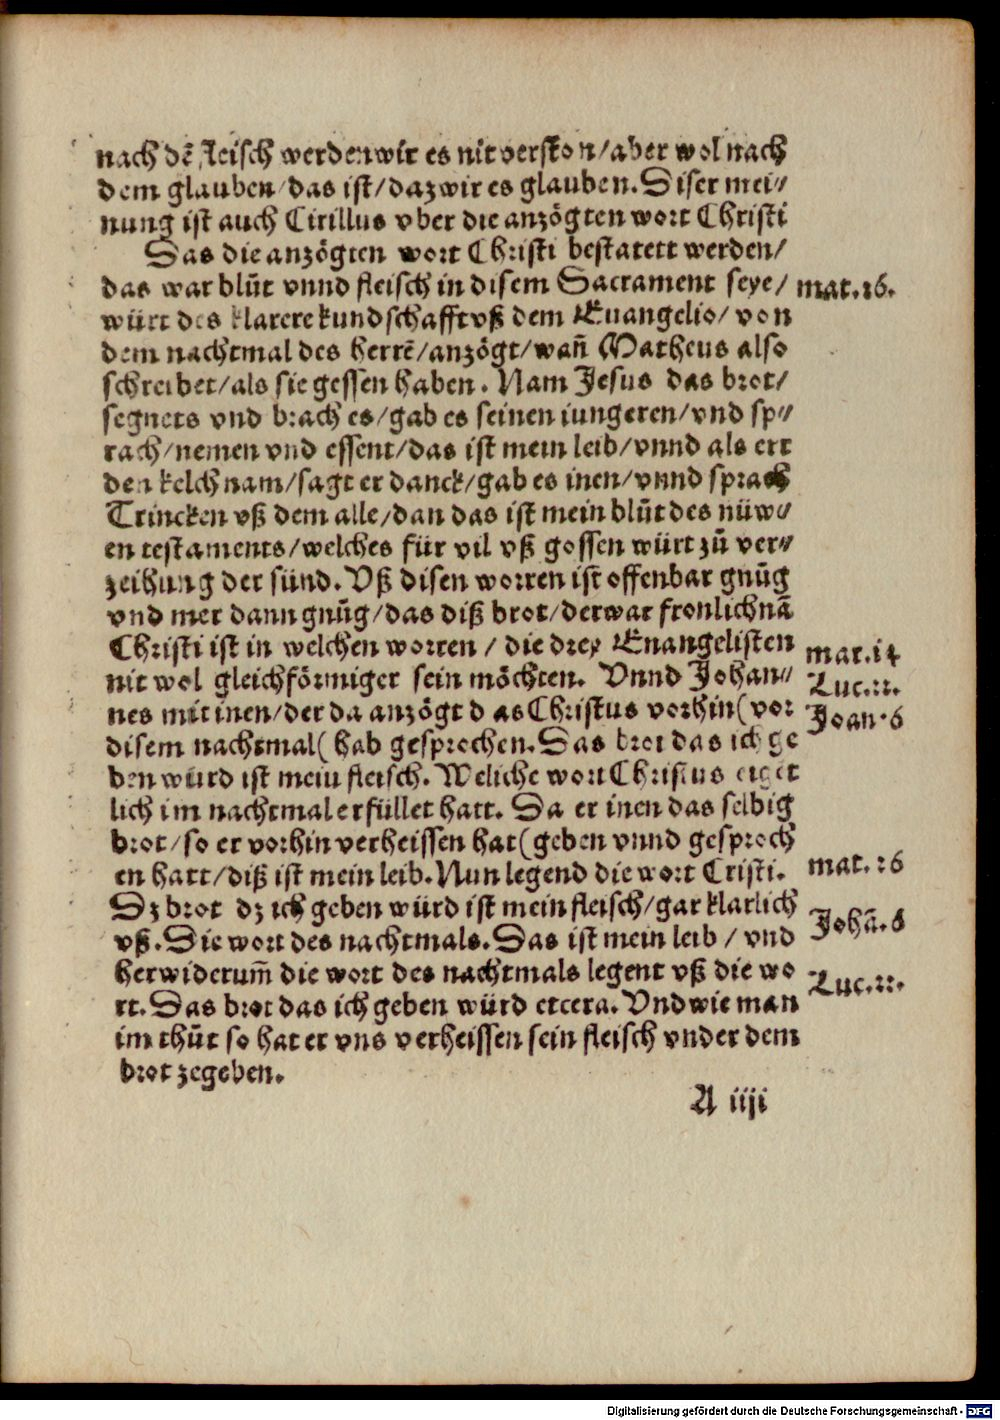 nach dē fleisch werden wir es nit verston/aber wol nach
dem glauben/das ist/daz wir es glauben. Diser mei⸗
nung ist auch Cirillus vber die anzögten wort Christi
Das die anzögten wort Christi bestatett werden/
das war blůt vnnd fleisch in disem Sacrament seye/
mat.26.
würt des klarere kundschafft vß dem Euangelio/von
dem nachtmal des herrē/anzögt/wañ Matheus also
schreibet/als sie gessen haben. Nam Jesus das brot/
segnets vnd brach es/gab es seinen iungeren/vnd sp⸗
rach/nemen vnd essent/das ist mein leib/vnnd als err
den kelch nam/sagt er danck/gab es inen/vnnd sprach
Trincken vß dem alle/dan das ist mein blůt des nüw⸗
en testaments/welches für vil vß gossen würt zů ver⸗
zeihung der sünd. Vß disen worren ist offenbar gnůg
vnd mer dann gnůg/das diß brot/der war fronlichnā
Christi ist in welchen worren/die drey Enangelisten
mar.14
nit wol gleichförmiger sein möchten. Vnnd Johan⸗
Luc.22.
nes mit inen/der da anzögt d as Christus vorhin(vor
Joan.6
disem nachtmal( hab gesprochen. Das brot das ich ge
ben würd ist mein fleisch. Weliche wort Christus eiget
lich im nachtmal erfüllet hatt. Da er inen das selbig
brot/so er vorhin verheissen hat(geben vnnd gesproch
en hatt/diß ist mein leib. Nun legend die wort Cristi.
mat.26
Dz brot dz ich geben würd ist mein fleisch/gar klarlich
Johā.6
vß. Die wort des nachtmals. Das ist mein leib/vnd
herwiderum̄ die wort des nachtmals legent vß die wo
Luc.22.
rt. Das brot das ich geben würd etcera. Vnd wie man
im thůt so hat er vns verheissen sein fleisch vnder dem
brot zegeben.
A iiij
Digitalisierung gefördert durch die Deutsche Forschungsgemeinschaft - DFG